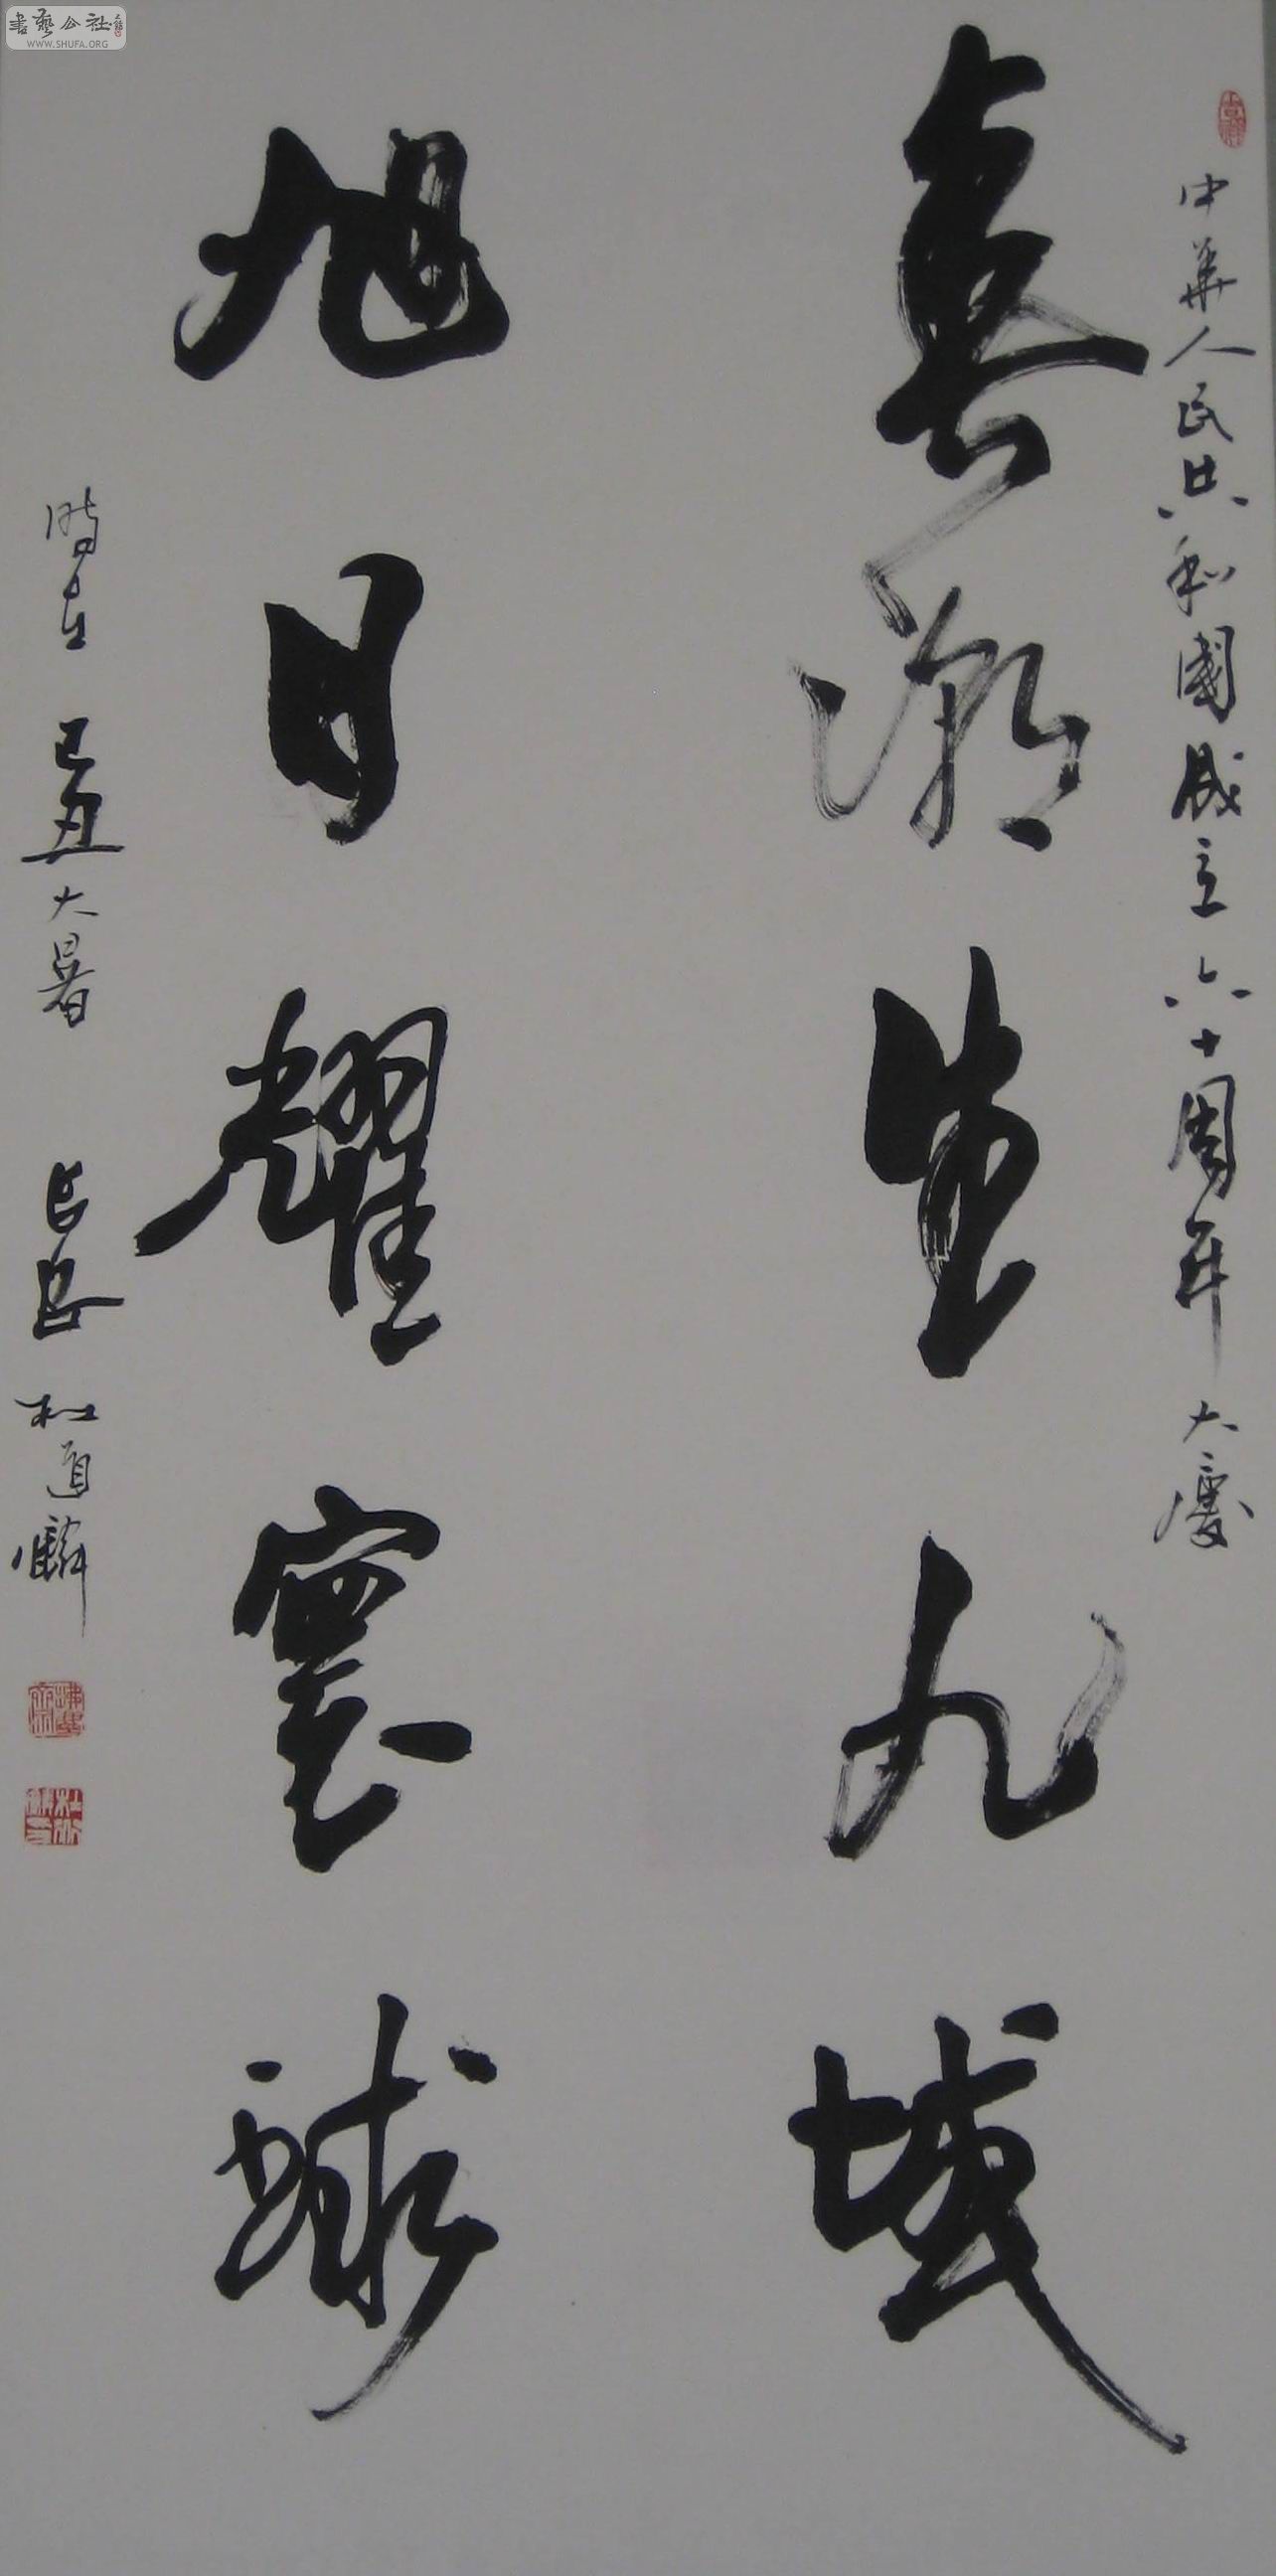 書藝公社
WWW.SHUFA.ORG
中華人民共和國成立六十周年大慶
春潮生九域
旭日耀寰球
時在己丑大暑 長安 杜道麟